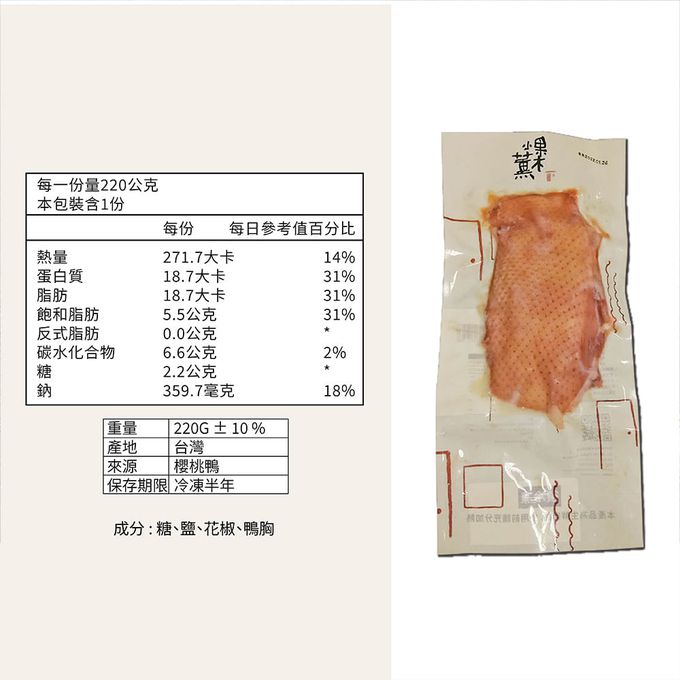 每一份量220公克
本包裝含1份
每份 每日參考值百分比
熱量 271.7大卡 14%
蛋白質 18.7大卡 31%
脂肪 18.7大卡 31%
飽和脂肪 5.5公克 31%
反式脂肪 0.0公克 *
碳水化合物 6.6公克 2%
糖 2.2公克 *
鈉 359.7毫克 18%
重量 220G ± 10 %
產地 台灣
來源 櫻桃鴨
保存期限 冷凍半年
成分 : 糖、鹽、花椒、鴨胸
小果
蒸